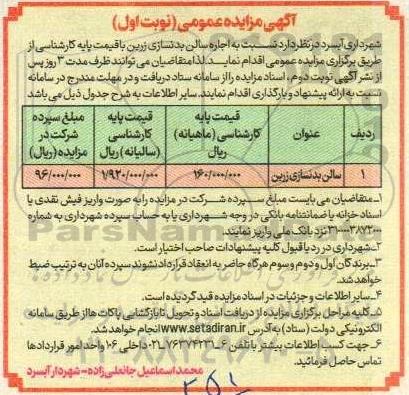 آگهی مزایده عمومی (نوبت اول)
شهرداری آبسرد در نظر دارد نسبت به اجاره سالن بدنسازی زرین با قیمت پایه کارشناسی از
طریق برگزاری مزایده عمومی اقدام نماید. لذا متقاضیان می توانند ظرف مدت ۳ روز پس
از نشر آگهی نوبت دوم، اسناد مزایده را از سامانه ستاد دریافت و در مهلت مندرج در سامانه
نسبت به ارائه پیشنهاد و بارگذاری اقدام نمایند. سایر اطلاعات به شرح جدول ذیل می باشد
ردیف عنوان قیمت پایه کارشناسی (ماهیانه) ریال قیمت پایه کارشناسی (سالیانه) ریال مبلغ سپرده شرکت در مزایده (ریال)
۱ سالن بدنسازی زرین ۱۶۰/۰۰۰/۰۰۰ ۱/۹۲۰/۰۰۰/۰۰۰ ۹۶/۰۰۰/۰۰۰
۱ـ متقاضیان می بایست مبلغ سپرده شرکت در مزایده را به صورت واریز فیش نقدی یا
اسناد خزانه یا ضمانتنامه بانکی در وجه شهرداری یا به حساب سپرده شهرداری به شماره
نزد بانک ملی واریز نمایند.
۲ـ شهرداری در رد یا قبول کلیه پیشنهادات صاحب اختیار است.
۳ـ برندگان اول و دوم و سوم هرگاه حاضر به انعقاد قرارداد نشوند سپرده آنان به ترتیب ضبط
خواهد شد.
۴ـ سایر اطلاعات و جزئیات در اسناد مزایده قید گردیده است.
۵ـ کلیه مراحل برگزاری مزایده از دریافت اسناد و تحویل تا بازگشایی پاکات ها از طریق سامانه
الکترونیکی دولت (ستاد) به آدرس www.setadiran.ir انجام خواهد شد.
۶ـ جهت کسب اطلاعات بیشتر با تلفن ۶ـ۷۶۳۷۴۲۳۱ـ۰۲۱ داخلی ۱۰۶ واحد امور قراردادها
تماس حاصل فرمائید.
محمد اسماعیل جانعلی زاده - شهردار آبسرد